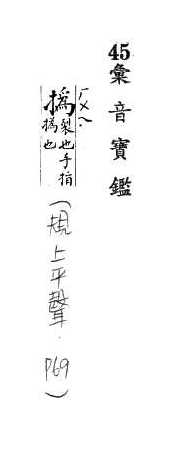 45彙音寶鑑
ㄏㄨㄟ
撝裂也手指
撝也
(規上平聲. P69)